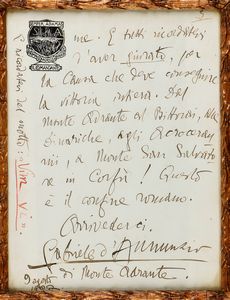 me. E tutti ricordatevi
d'aver giurato, per
la Causa che deve conseguire
la vittoria intera. Dal
monte Adrante al Bittorai, alle
Dinariche, agli Acrocerau-
nii, a Monte San Salvato-
re in Corfù! Questo
è il confine romano.
Arrivederci.
Gabriele d'Annunzio
di Monte Adrante.
9 agosto
E ricordatevi del motto: